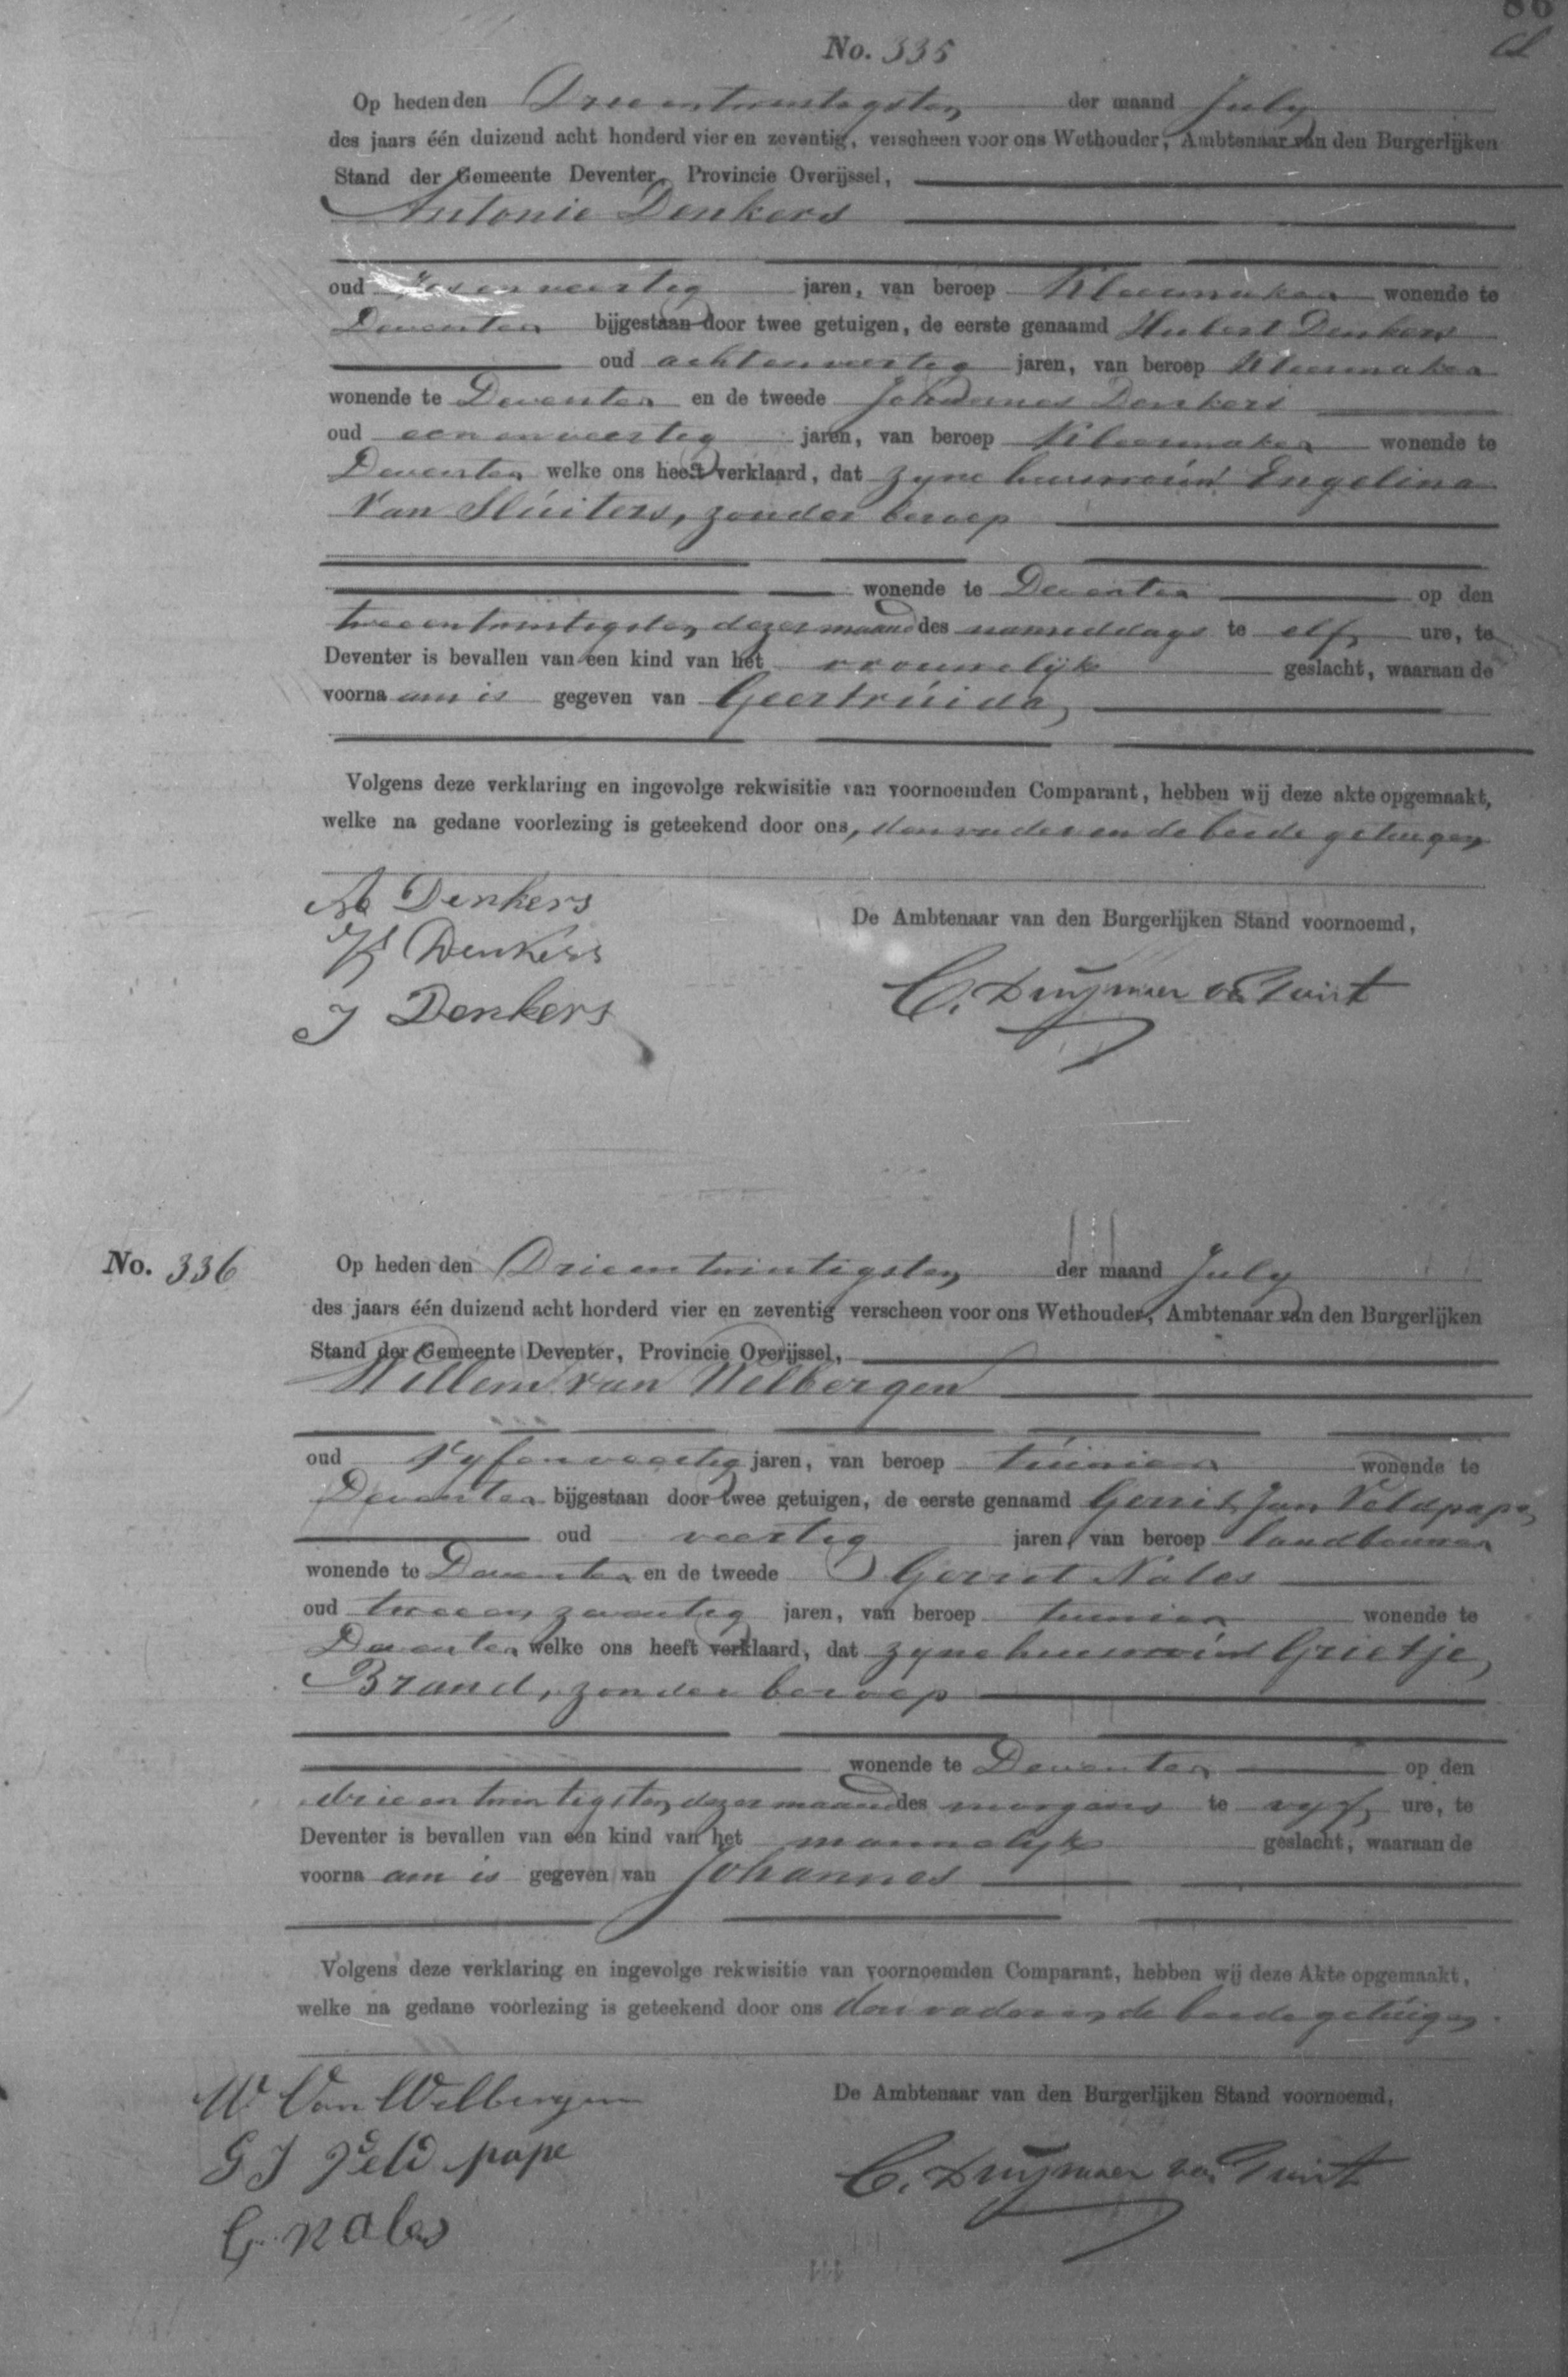 86
No. 335
Op heden den Drieentwintigsten der maand July
des jaars één duizend acht honderd vier en zeventig, verscheen voor ons Wethouder, Ambtenaar van den Burgerlijken
Stand der Gemeente Deventer, Provincie Overijssel,
Antonie Denkers
oud zes en veertig jaren, van beroep Kleermaker wonende te
Deventer bijgestaan door twee getuigen, de eerste genaamd Hubert Denkers
oud achtenveertig jaren, van beroep Kleermaker
wonende te Deventer en de tweede Johannes Denkers
oud eenenveertig jaren, van beroep Kleermaker wonende te
Deventer welke ons heeft verklaard, dat zyne huisvrouw Engelina
Van Sluiters, zonder beroep
wonende te Deventer op den
tweeentwintigsten dezer maand des namiddags te elf ure, te
Deventer is bevallen van een kind van het vrouwelijk geslacht, waaraan de
voorna am is gegeven van Geertruida
Volgens deze verklaring en ingevolge rekwisitie van voornoemden Comparant, hebben wij deze akte opgemaakt,
welke na gedane voorlezing is geteekend door ons, den vader en de beide getuigen
A Denkers
H Denkers
J Denkers
De Ambtenaar van den Burgerlijken Stand voornoemd,
C. Duymaer v. Twist
No. 336
Op heden den Drieentwintigsten der maand July
des jaars één duizend acht horderd vier en zeventig verscheen voor ons Wethouder, Ambtenaar van den Burgerlijken
Stand der Gemeente Deventer, Provincie Overijssel,
Willem van Welbergen
oud Vyfenveertig jaren, van beroep tuinier wonende te
Deventer bijgestaan door twee getuigen, de eerste genaamd Gerrit Jan Veldpape
oud veertig jaren, van beroep landbouwer
wonende te Deventer en de tweede Gerrit Nales
oud tweeenzeventig jaren, van beroep tuinier wonende te
Deventer welke ons heeft verklaard, dat zyne huisvrouw Grietje
Brand, zonder beroep
wonende te Deventer op den
drieentwintigsten dezer maand des morgens te vyf ure, te
Deventer is bevallen van een kind van het mannelijk geslacht, waaraan de
voorna am is gegeven van Johannes
Volgens deze verklaring en ingevolge rekwisitie van voornoemden Comparant, hebben wij deze Akte opgemaakt,
welke na gedane voorlezing is geteekend door ons den vader en de beide getuigen
W Van Welbergen
G J Veldpape
G. Nales
De Ambtenaar van den Burgerlijken Stand voornoemd,
C. Duymaer van Twist